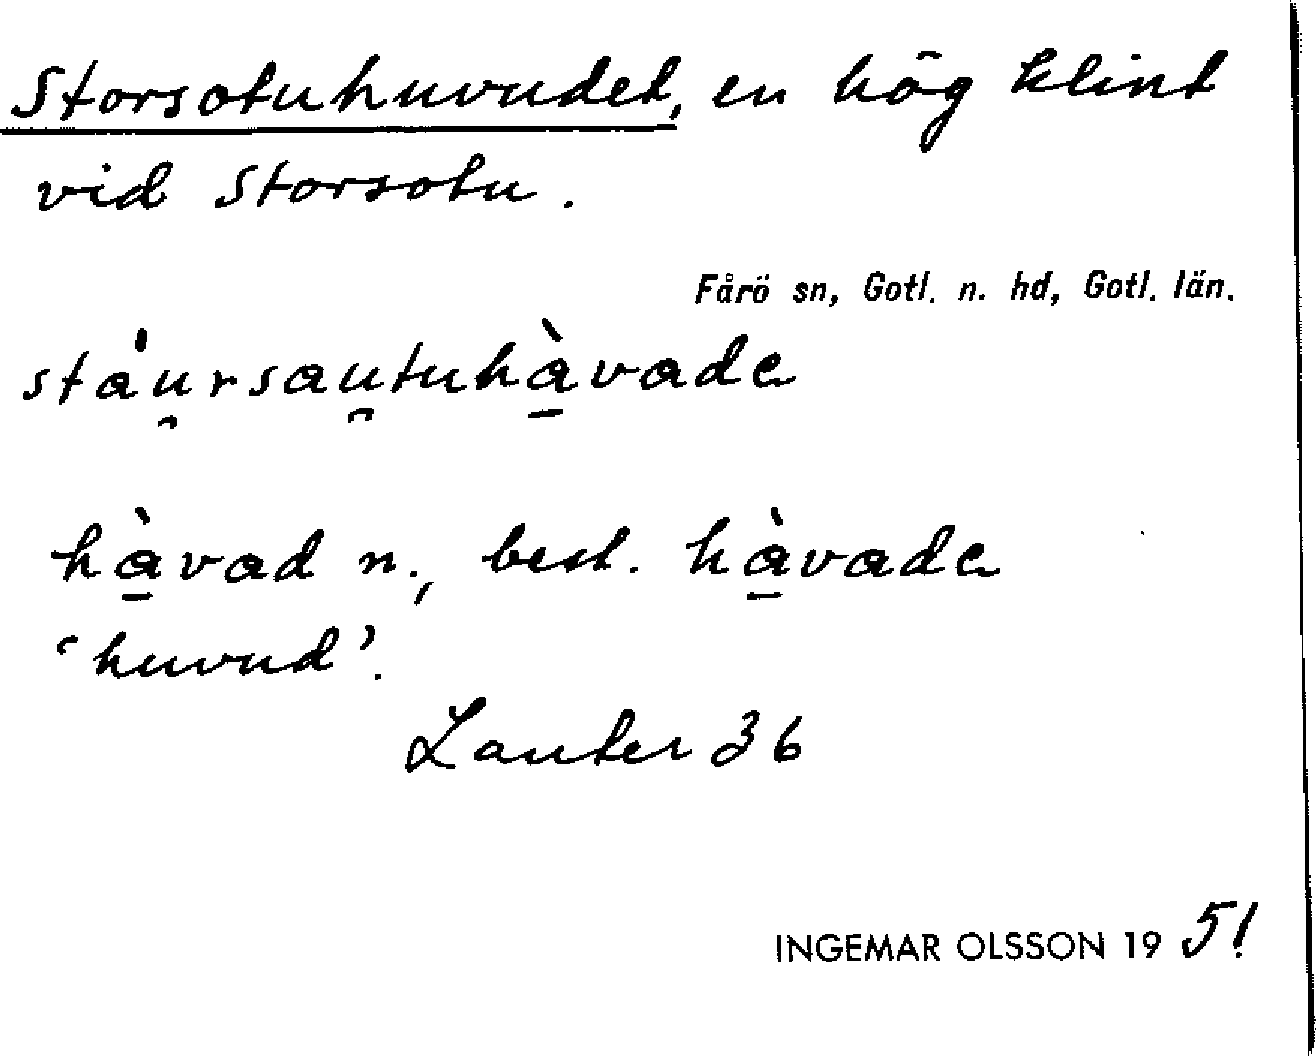 Storsotuhuvudet, en hög klint
vid Storsotu.
Fårö sn, Gotl. n. hd, Gotl. län.
stá̍u̯rsau̯tuhà̱vade
hà̱vad n., best. hà̱vade
‘huvud’.
Lauter 36
INGEMAR OLSSON 1951